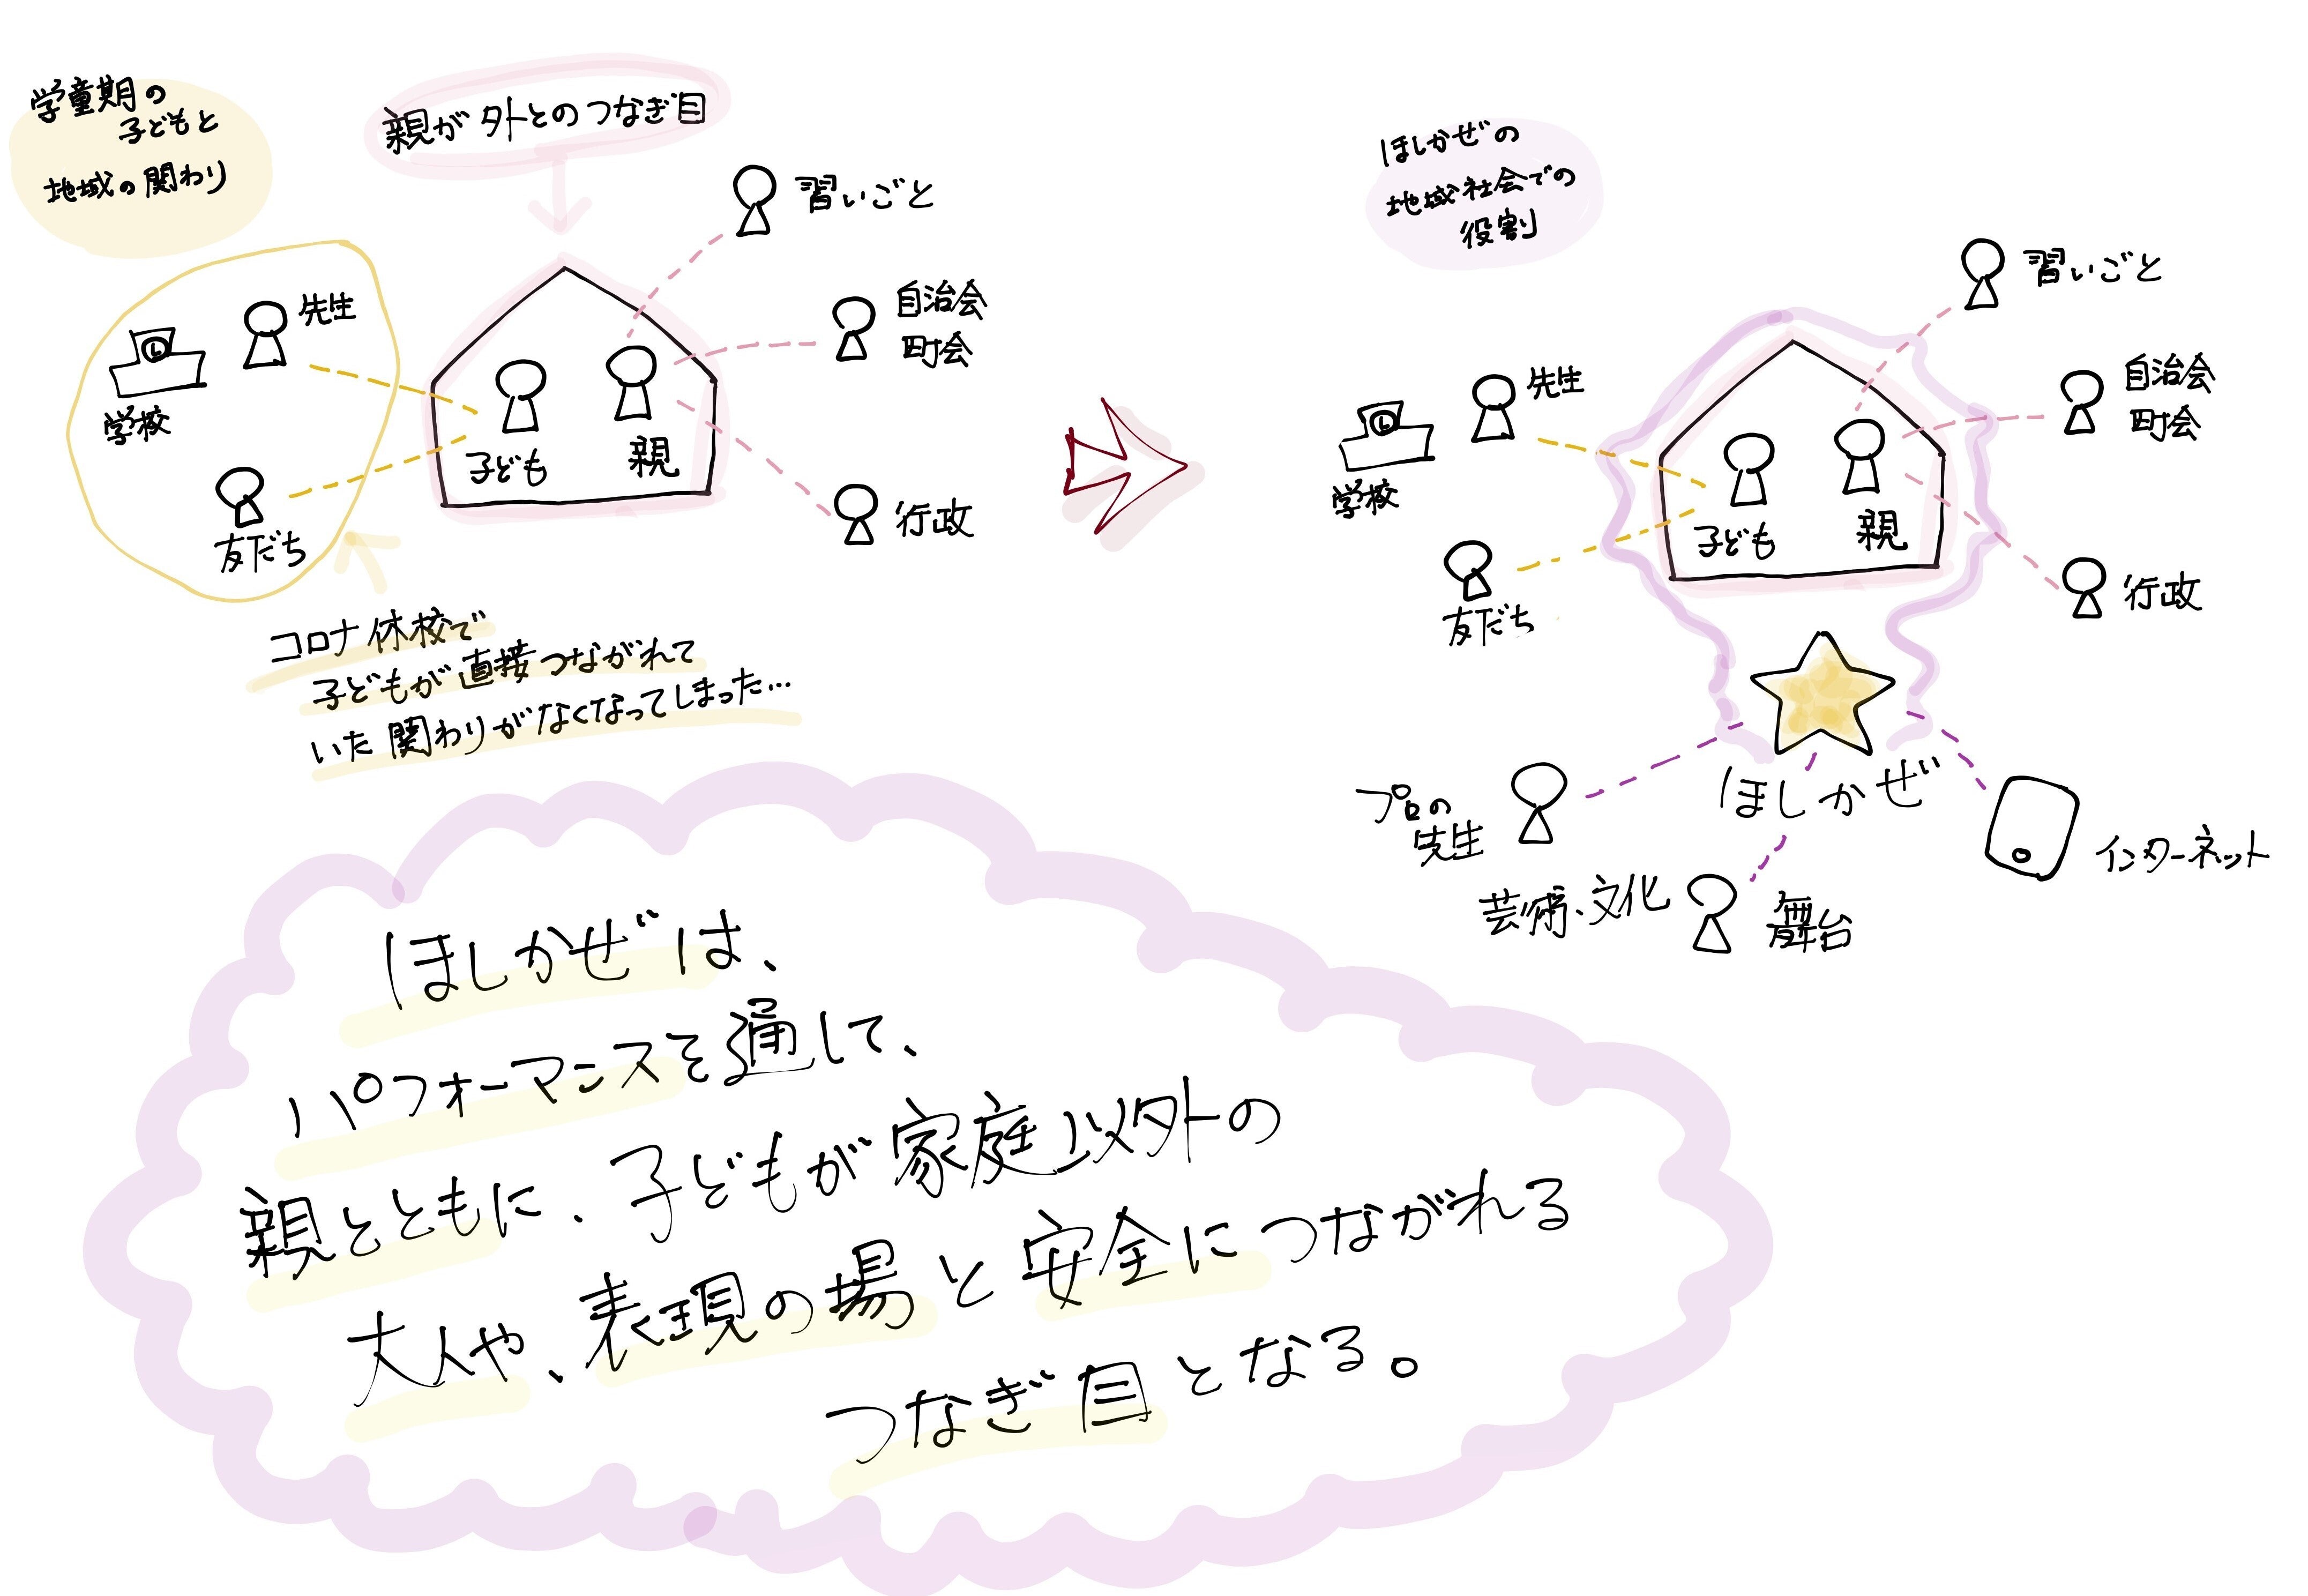 学童期の
子どもと
地域の関わり
親が外とのつなぎ目
習いごと
自治会
町会
行政
先生
学校
友だち
子ども
親
コロナ休校で
子どもが直接つながれて
いた関わりがなくなってしまった…
ほしかぜの
地域社会での
役割
習いごと
自治会
町会
行政
先生
学校
友だち
子ども
親
ほしかぜ
プロの
先生
芸術、文化
舞台
インターネット
ほしかぜは、
パフォーマンスを通して、
親とともに、子どもが家庭以外の
大人や、表現の場と安全につながれる
つなぎ目となる。